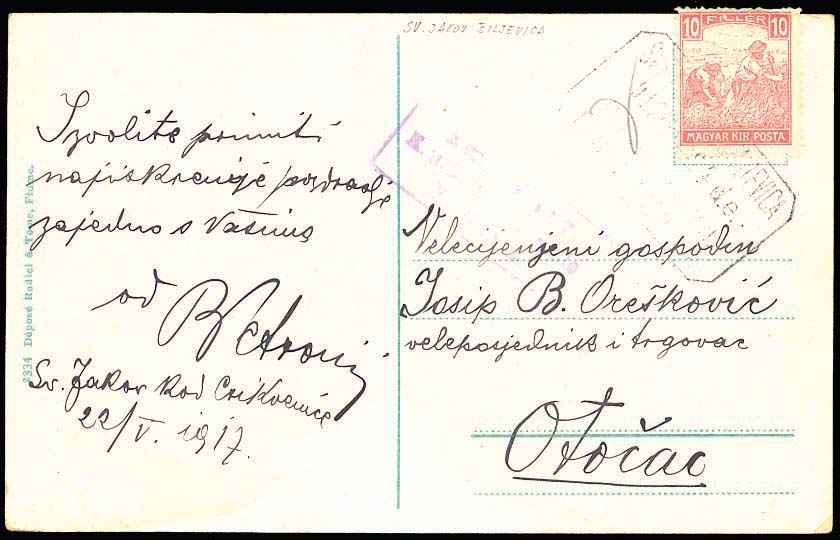 SV. JAKOV ŠILJEVICA
10 FILLÉR 10
MAGYAR KIR. POSTA
ŠILJEVICA
Izvolite primiti
najiskrenije pozdrave
zajedno s Vašima
od
Sv. Jakov kod Crikvenice
22/V. 1917.
2334 Déposé Radici & Tomc, Fiume.
Velecijenjeni gospodin
Josip B. Orešković
veleposjednik i trgovac
Otočac